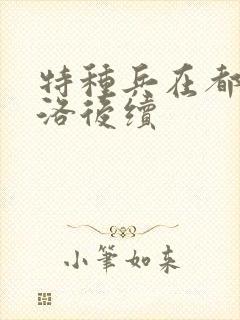 特種兵在都
洛後續
小筆如來